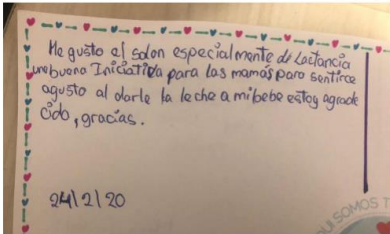 Me gusto el salon especialmente de Lactancia
una buena Iniciativa para las mamás para sentirce
agusto al darle la leche a mi bebe estoy agrade
cido, gracias.
24/2/20
SOMOS T